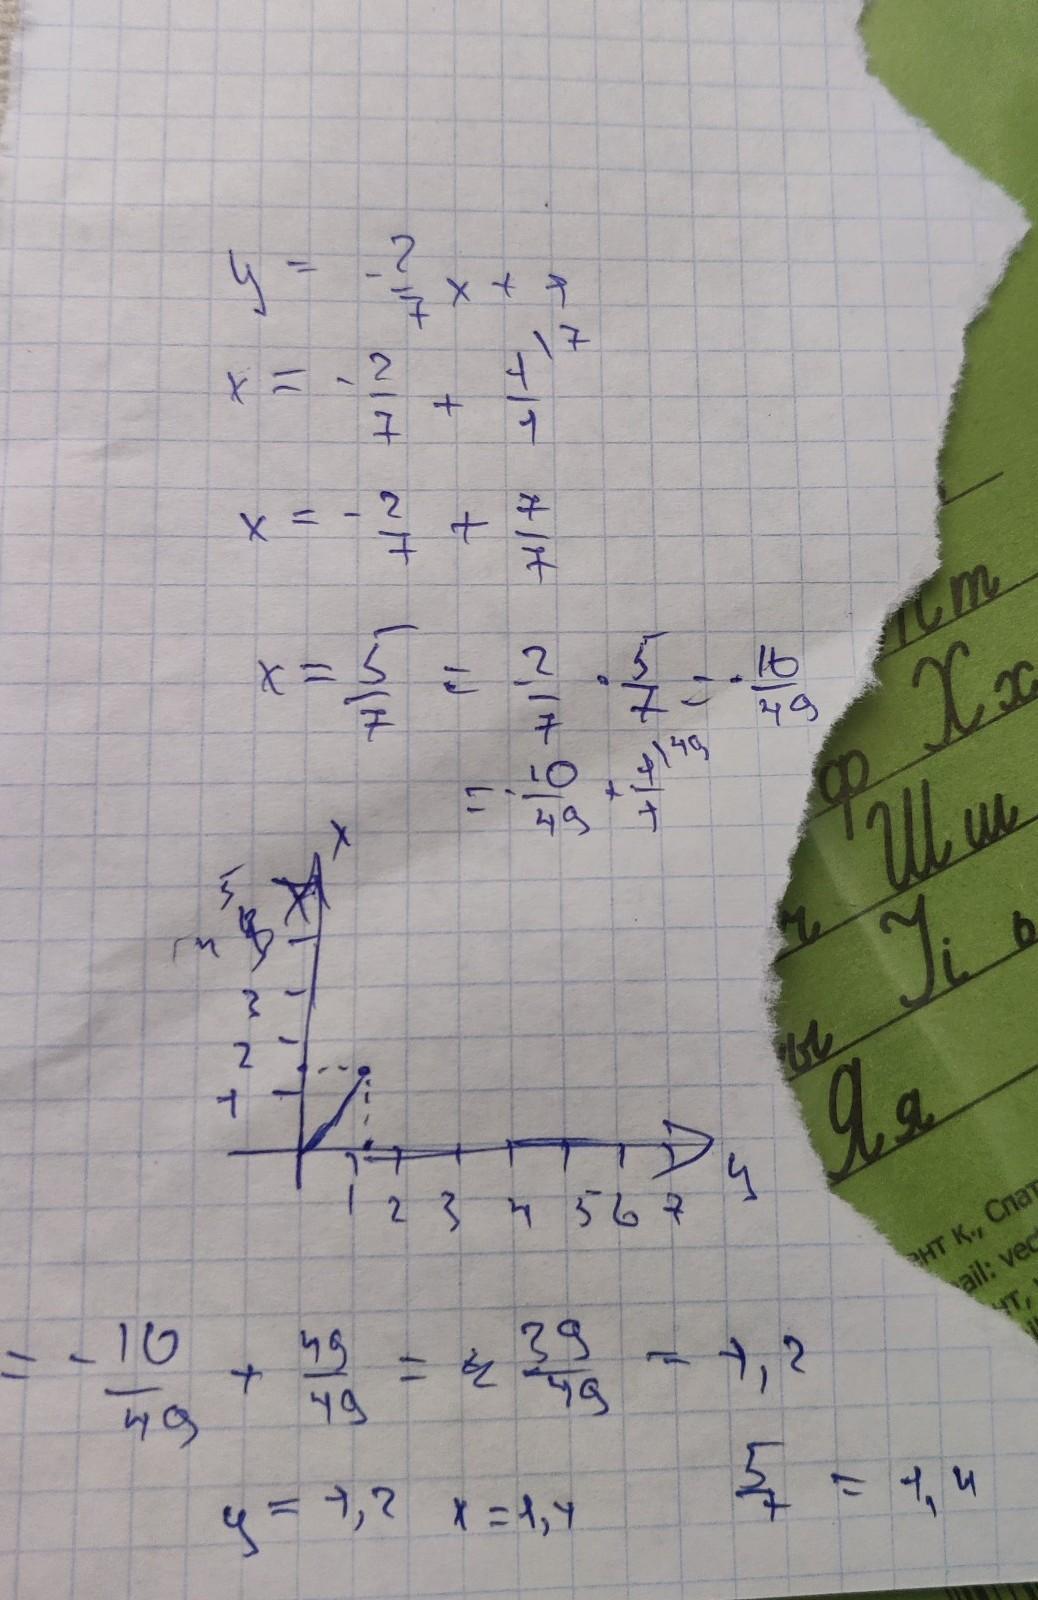 y = -2/7 x + 1
x = -2/7 + 1/1 \7
x = -2/7 + 7/7
x = 5/7 = 2/7 · 5/7 = -10/49
= -10/49 + 1/1 \49
x
5
4
3
2
1
1 2 3 4 5 6 7
y
= -10/49 + 49/49 = 39/49 = 1,2
5/7 = 1,4
y = 1,2 x = 1,4
Хх
ф
Шш
Уі
ы
Яя
ент К., Спат
ail: vec